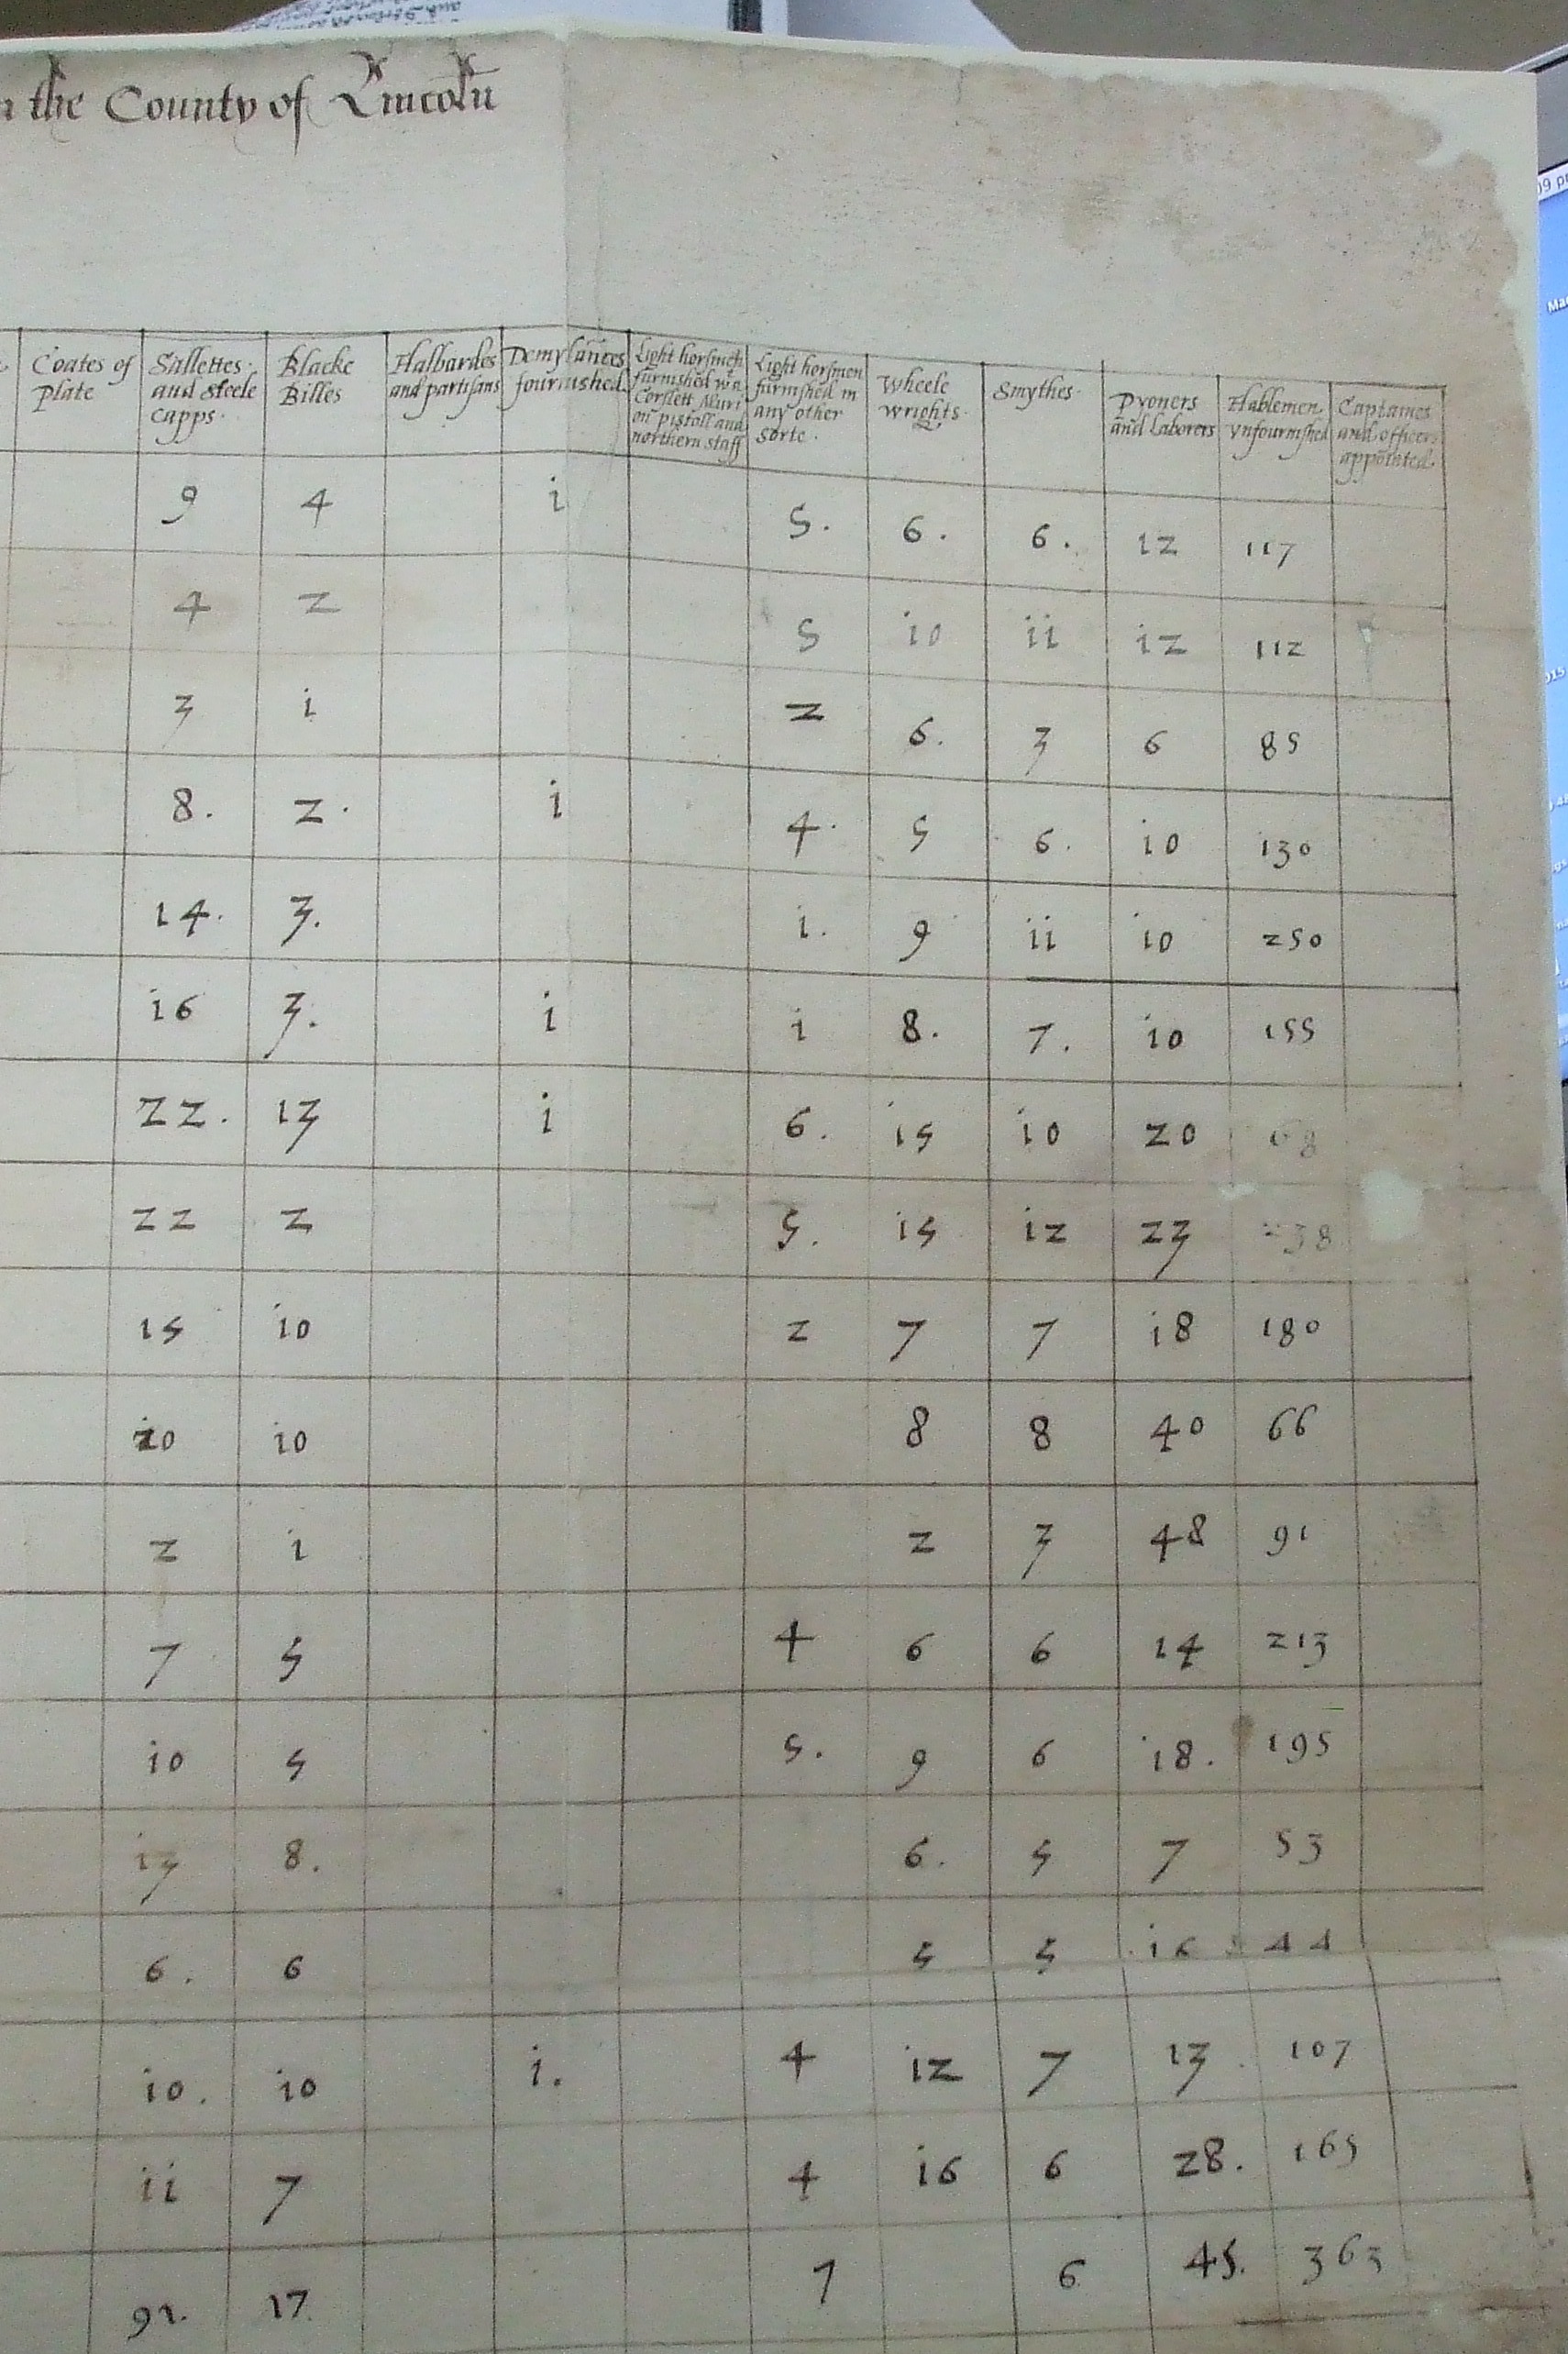 the County of Lincoln
Coates of plate | Sallettes and steele capps. | Blacke Billes | Halbardes and partisans | Demylances fournished | Light horsmen furnished wth Corslett Murion pistoll and northern staff | Light horsmen furnished in any other sorte. | Wheele wrights. | Smythes. | Pyoners and Laborers | Hablemen vnfournished | Captaines and officers appointed.
9 4 i 5. 6. 6. 12 117
4 2 5 io ii i2 112
3 i 2 6. 3 6 85
8. 2. i 4. 5 6. io 130
14. 3. i. 9 ii io 250
i6 3. i i 8. 7. io 155
22. 13 i 6. i5 io 20
22 2 5. i5 i2 23
15 io 2 7 7 i8 180
io io 8 8 40 66
2 i 2 3 48 91
7 5 4 6 6 14 213
io 5 5. 9 6 i8. 195
i3 8. 6. 5 7 53
6. 6 5 5 i6 44
io. io i. 4 i2 7 13. 107
ii 7 4 i6 6 28. 165
91. 17. 7 6 45. 363